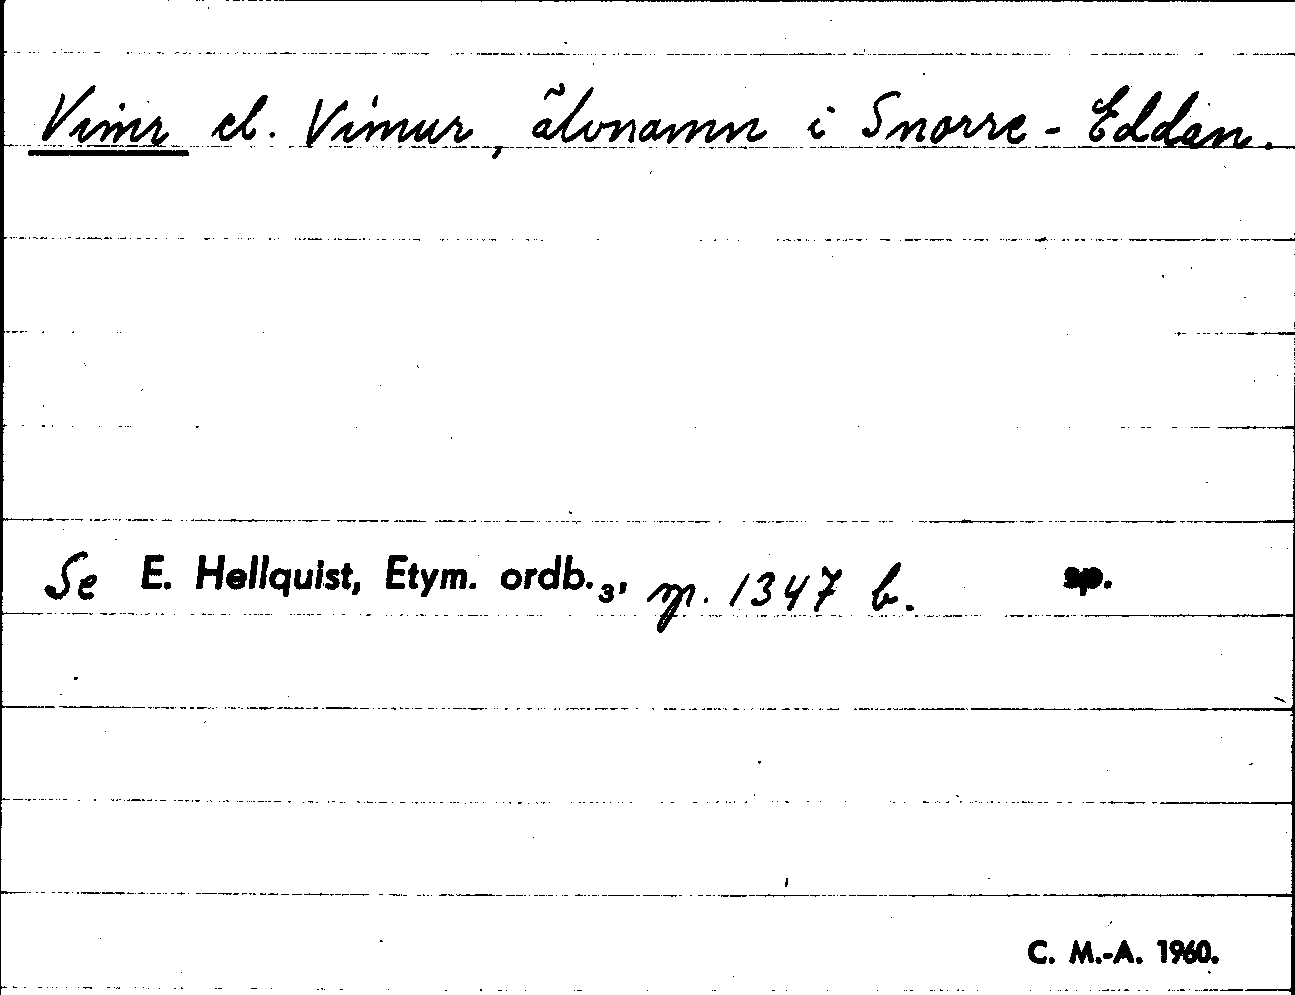 Vimr el. Vimur, älvnamn i Snorre-Eddan.
Se E. Hellquist, Etym. ordb.₃, p. 1347 b. sp.
C. M.-A. 1960.